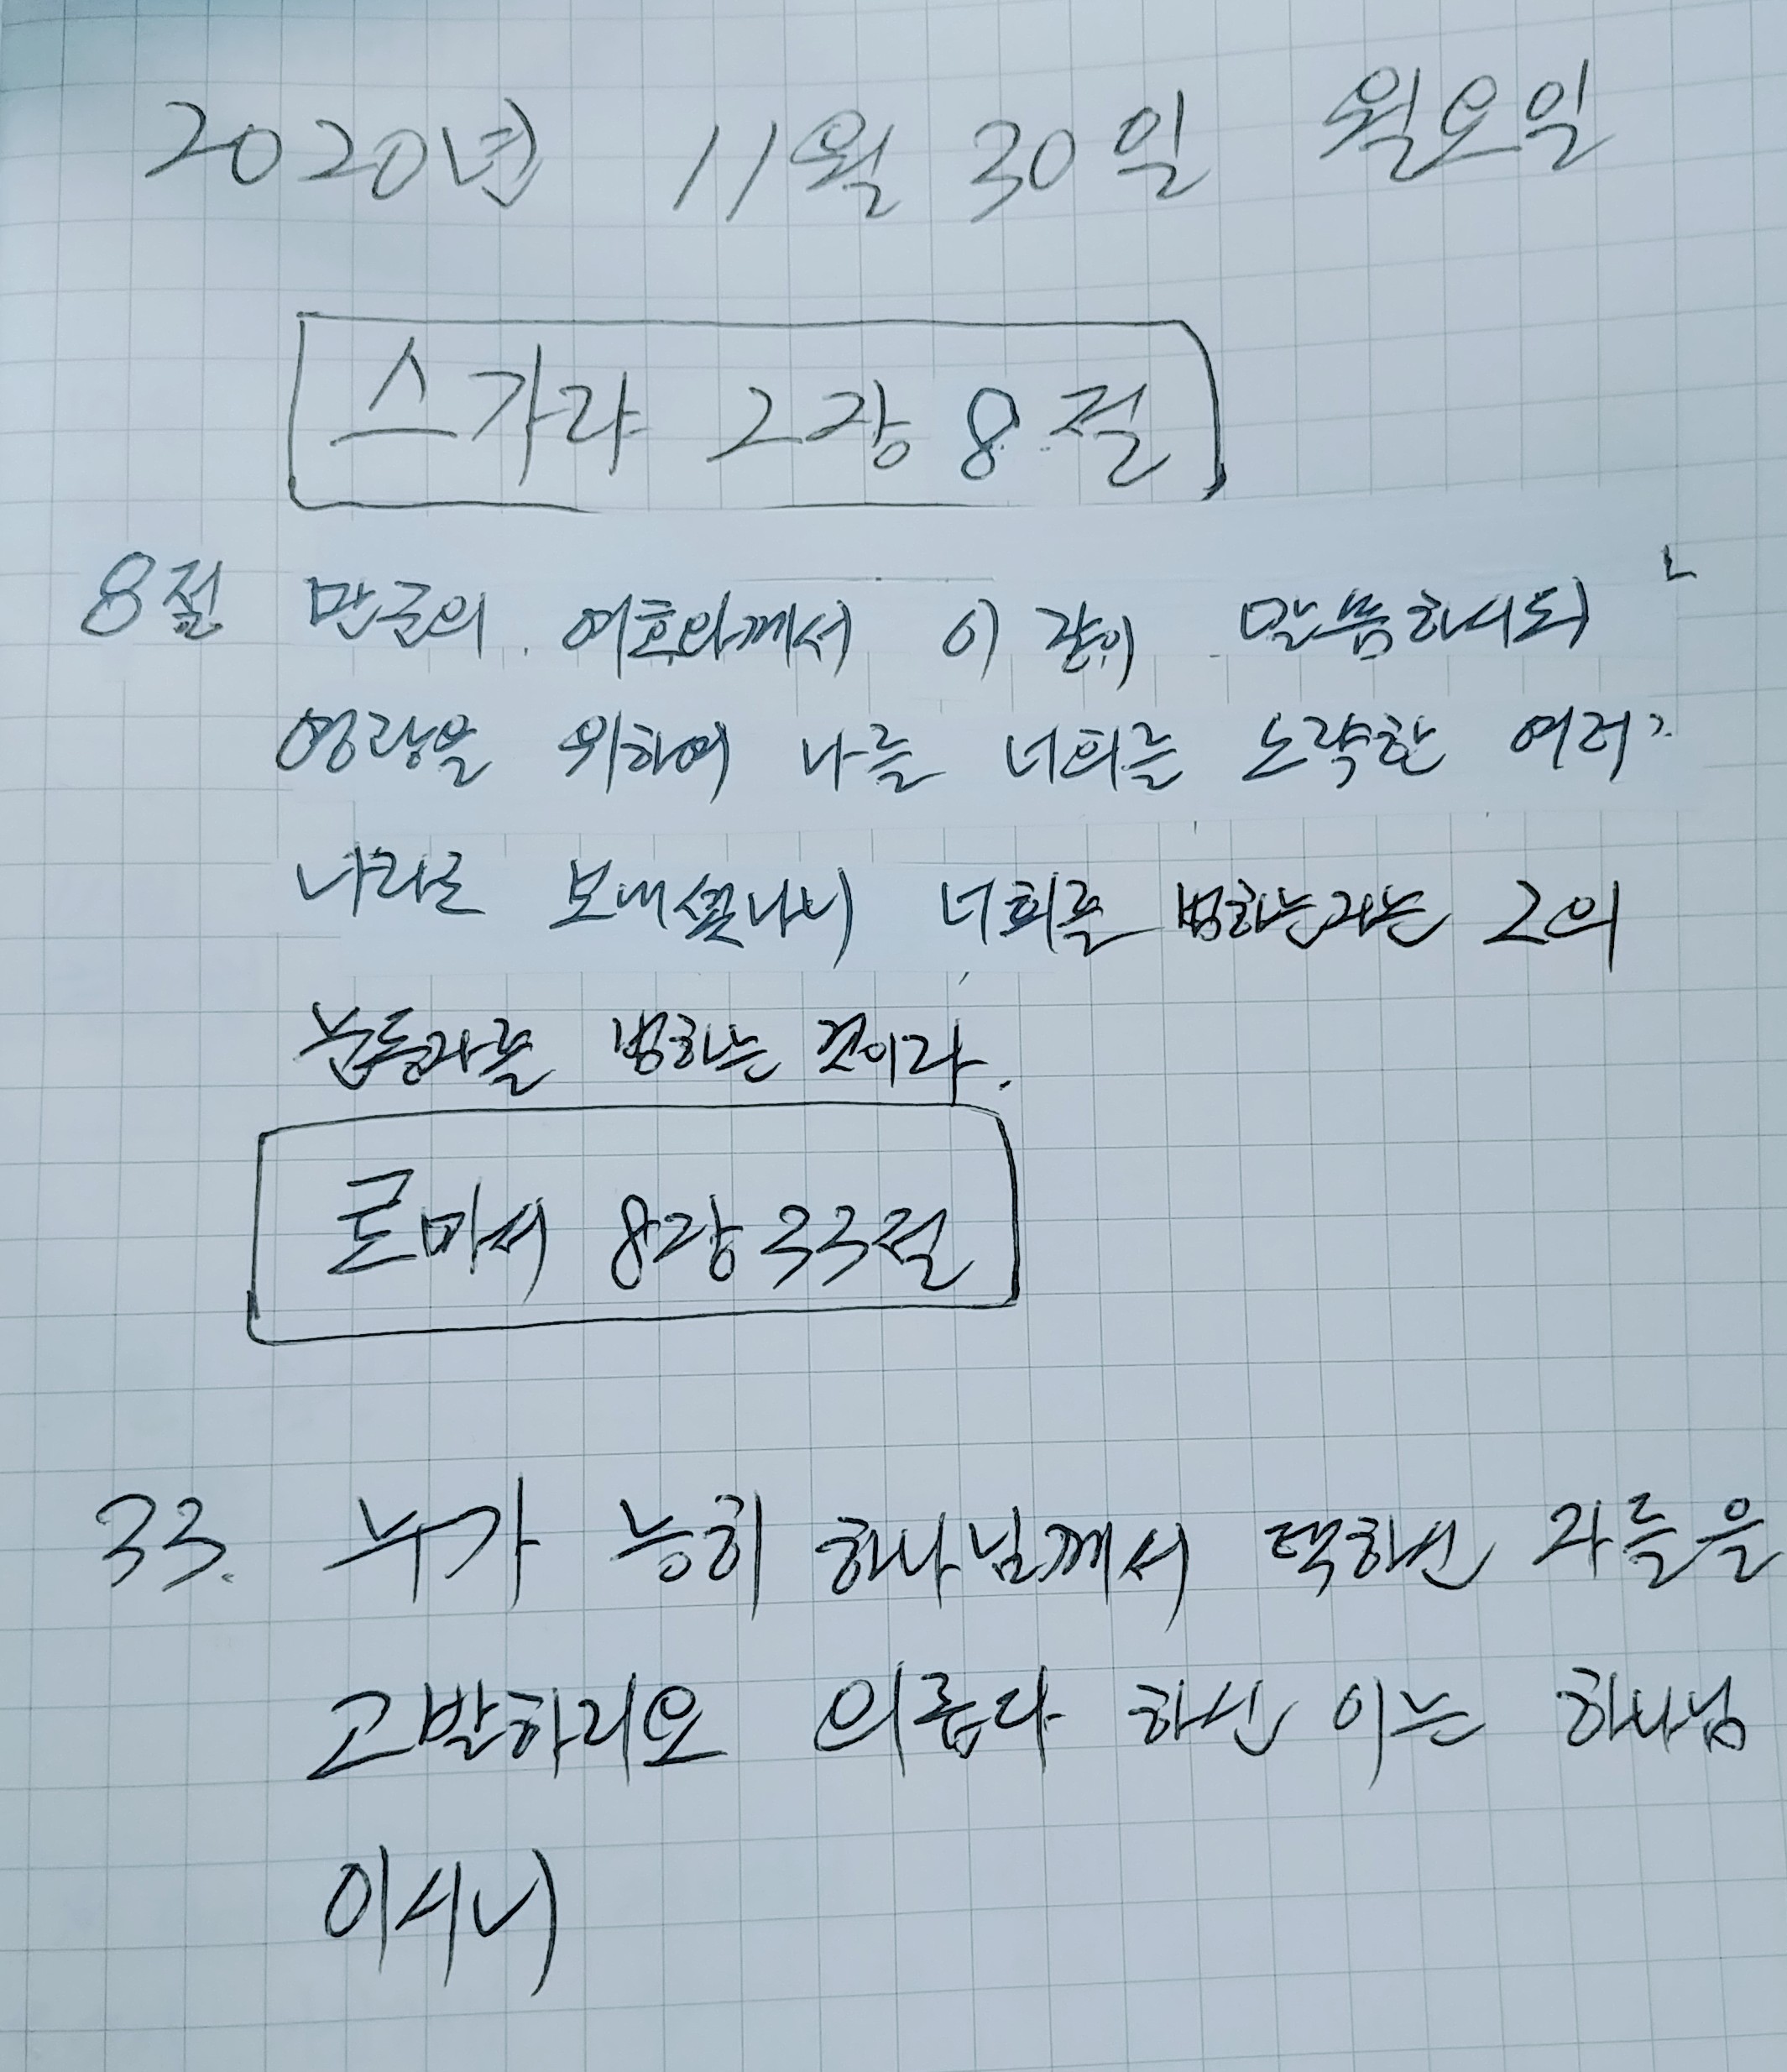 2020년 11월 30일 월요일
스가랴 2장 8절
8절 만군의 여호와께서 이 같이 말씀하시되
영광을 위하여 나를 너희를 노략한 여러
나라로 보내셨나니 너희를 범하는자는 그의
눈동자를 범하는 것이라.
로마서 8장 33절
33. 누가 능히 하나님께서 택하신 자들을
고발하리요 의롭다 하신 이는 하나님
이시니